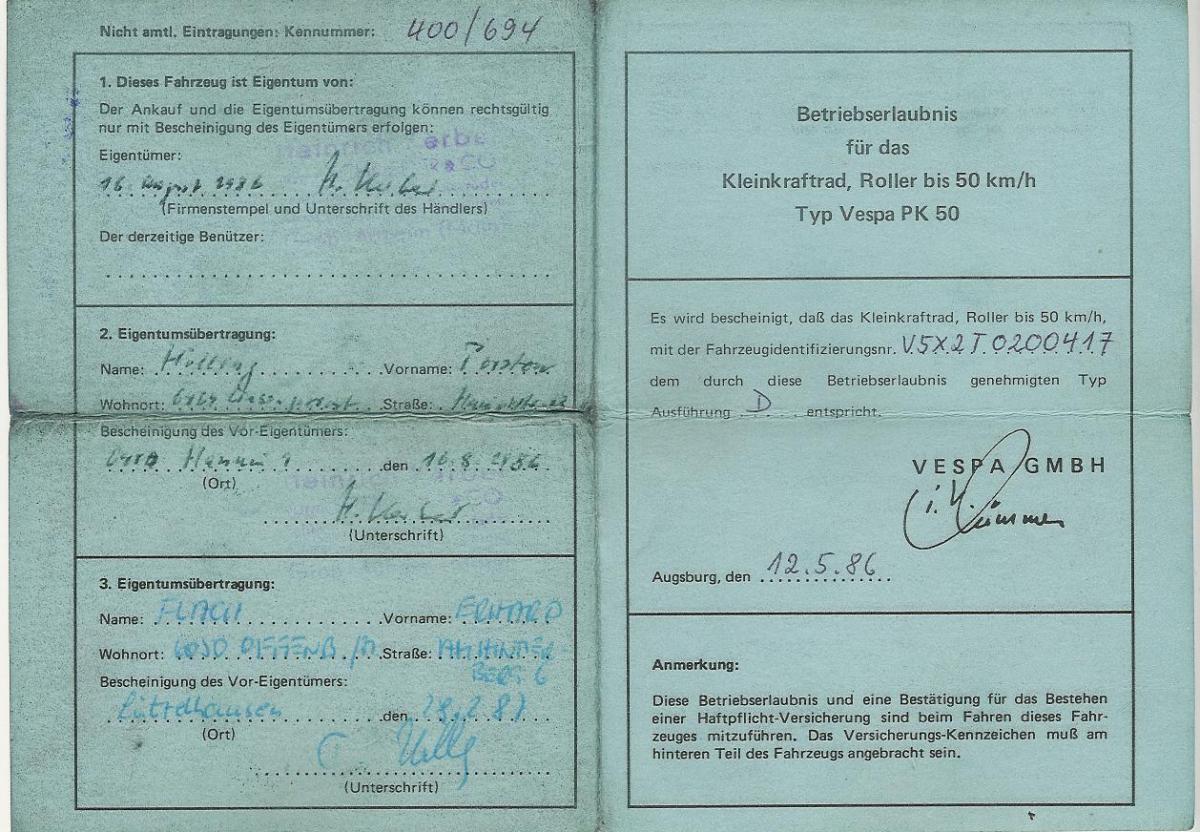 Nicht amtl. Eintragungen: Kennummer: 400/694
1. Dieses Fahrzeug ist Eigentum von:
Der Ankauf und die Eigentumsübertragung können rechtsgültig
nur mit Bescheinigung des Eigentümers erfolgen:
Eigentümer:
16. August 1986
(Firmenstempel und Unterschrift des Händlers)
Der derzeitige Benützer:
2. Eigentumsübertragung:
Name: Vorname:
Wohnort: Straße:
Bescheinigung des Vor-Eigentümers:
den 16.8.1986
(Ort)
(Unterschrift)
3. Eigentumsübertragung:
Name: FLACH Vorname: ERHARD
Wohnort: Straße: AM HINTER
BERG 6
Bescheinigung des Vor-Eigentümers:
den 28.2.87
(Ort)
(Unterschrift)
Betriebserlaubnis
für das
Kleinkraftrad, Roller bis 50 km/h
Typ Vespa PK 50
Es wird bescheinigt, daß das Kleinkraftrad, Roller bis 50 km/h,
mit der Fahrzeugidentifizierungsnr. V5X2T0200417
dem durch diese Betriebserlaubnis genehmigten Typ
Ausführung D entspricht.
VESPA GMBH
Augsburg, den 12.5.86
Anmerkung:
Diese Betriebserlaubnis und eine Bestätigung für das Bestehen
einer Haftpflicht-Versicherung sind beim Fahren dieses Fahr-
zeuges mitzuführen. Das Versicherungs-Kennzeichen muß am
hinteren Teil des Fahrzeugs angebracht sein.